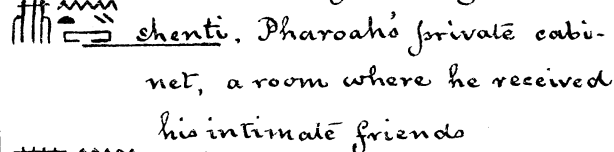 shenti, Pharoah's private cabi-
net, a room where he received
his intimate friends